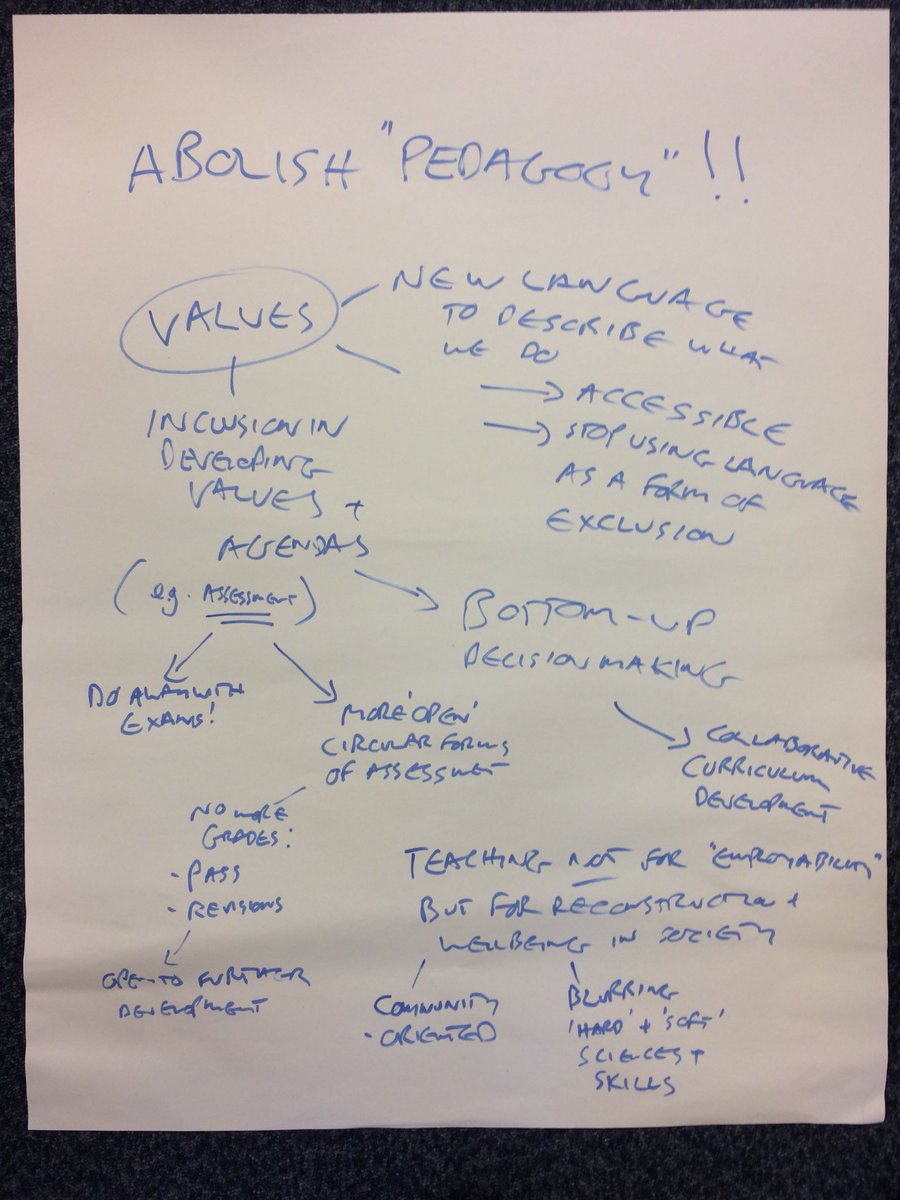 ABOLISH "PEDAGOGY"!!
VALUES
NEW LANGUAGE
TO DESCRIBE WHAT
WE DO
→ ACCESSIBLE
→ STOP USING LANGUAGE
AS A FORM OF
EXCLUSION
INCLUSION IN
DEVELOPING
VALUES +
AGENDAS
(e.g. ASSESSMENT)
BOTTOM-UP
DECISION MAKING
COLLABORATIVE
CURRICULUM
DEVELOPMENT
DO AWAY WITH
EXAMS!
MORE 'OPEN'
CIRCULAR FORMS
OF ASSESSMET
NO MORE
GRADES:
- PASS
- REVISIONS
OPEN TO FURTHER
DEVELOPMENT
TEACHING NOT FOR "EMPLOYABILITY"
BUT FOR RECONSTRUCTION +
WELLBEING IN SOCIETY
COMMUNITY
- ORIENTED
BLURRING
'HARD' + 'SOFT'
SCIENCES +
SKILLS